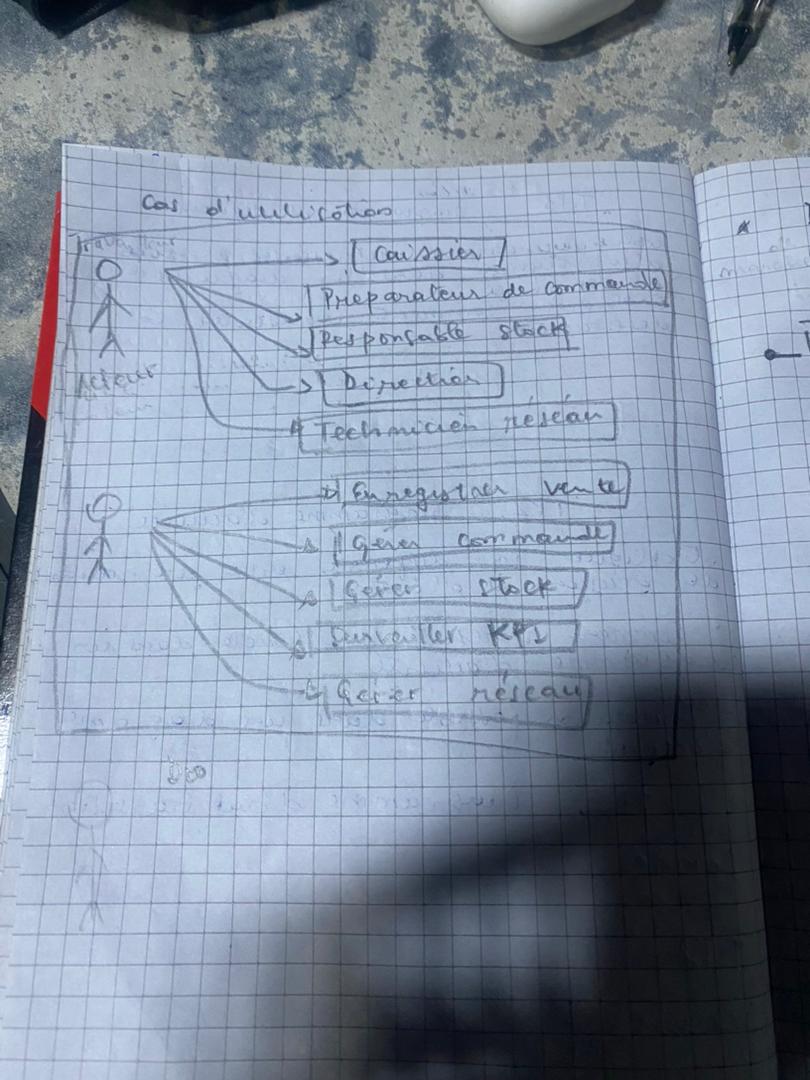 Cas d'utilisation
Travailleur
Caissier
Préparateur de commande
Responsable stock
Direction
Acteur
Technicien réseau
Enregistrer vente
Gérer commande
Gérer stock
Surveiller KPI
Gérer réseau